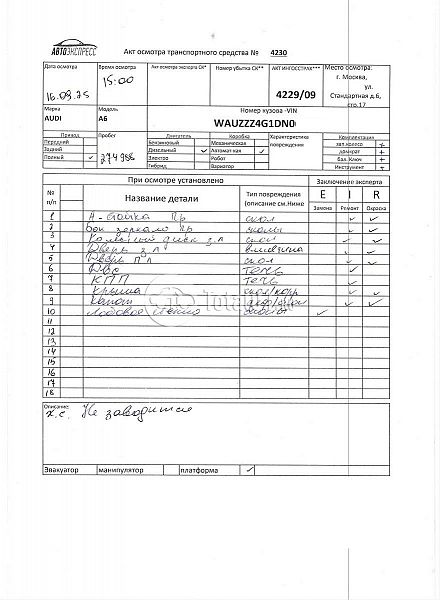 АВТОЭКСПРЕСС
Акт осмотра транспортного средства № 4230
Дата осмотра Время осмотра Акт осмотра эксперта СК* Номер убытка СК** АКТ ИНГОССТРАХ*** Место осмотра:
г. Москва,
ул.
Стандартная д.6,
стр.17
16.09.25 15:00 4229/09
Марка Модель Номер кузова -VIN
AUDI A6 WAUZZZ4G1DN0
Привод Пробег Двигатель Коробка Характеристика повреждения Комплектация
Передний Бензиновый Механическая зап.колесо +
Задний Дизельный ✓ Автоматная ✓ домкрат +
Полный ✓ 274986 Электро Робот бал. Ключ +
Гибрид Вариатор Инструмент +
При осмотре установлено Заключение эксперта
№ п/п Название детали Тип повреждения (описание см.Ниже E I R
Замена Ремонт Окраска
1 А-стойка пр скол ✓ ✓
2 Бок зеркало пр сколы ✓ ✓
3 Колесный диск з л скол ✓ ✓
4 Дверь з л вмятина ✓ ✓
5 Дверь п л скол ✓ ✓
6 ДВС течь ✓
7 КПП течь ✓
8 Крыша скол/корр ✓ ✓
9 Капот ✓ ✓
10 Лобовое стекло сколы ✓
11
12
13
14
15
16
17
18
Total
Описание:
х.с. Не заводится
Эвакуатор манипулятор платформа ✓